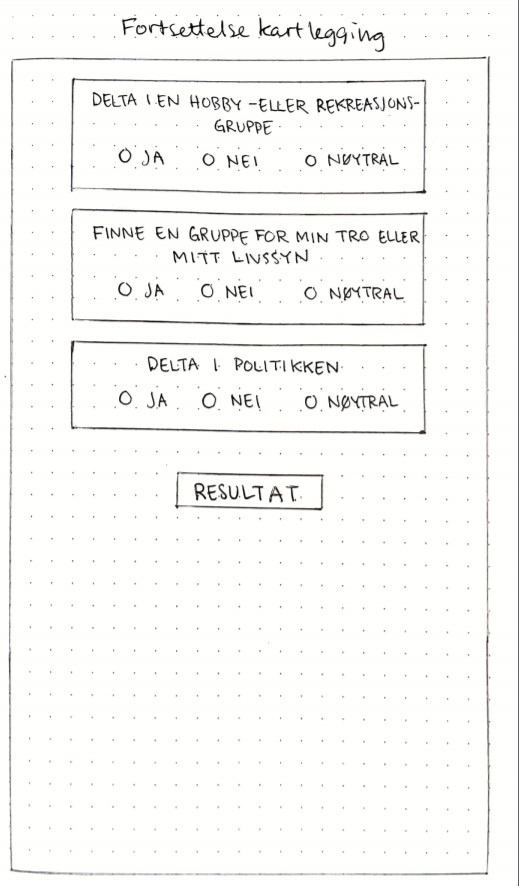 Fortsettelse kartlegging
DELTA I EN HOBBY-ELLER REKREASJONS-
GRUPPE
JA NEI NØYTRAL
FINNE EN GRUPPE FOR MIN TRO ELLER
MITT LIVSSYN
JA NEI NØYTRAL
DELTA I POLITIKKEN
JA NEI NØYTRAL
RESULTAT